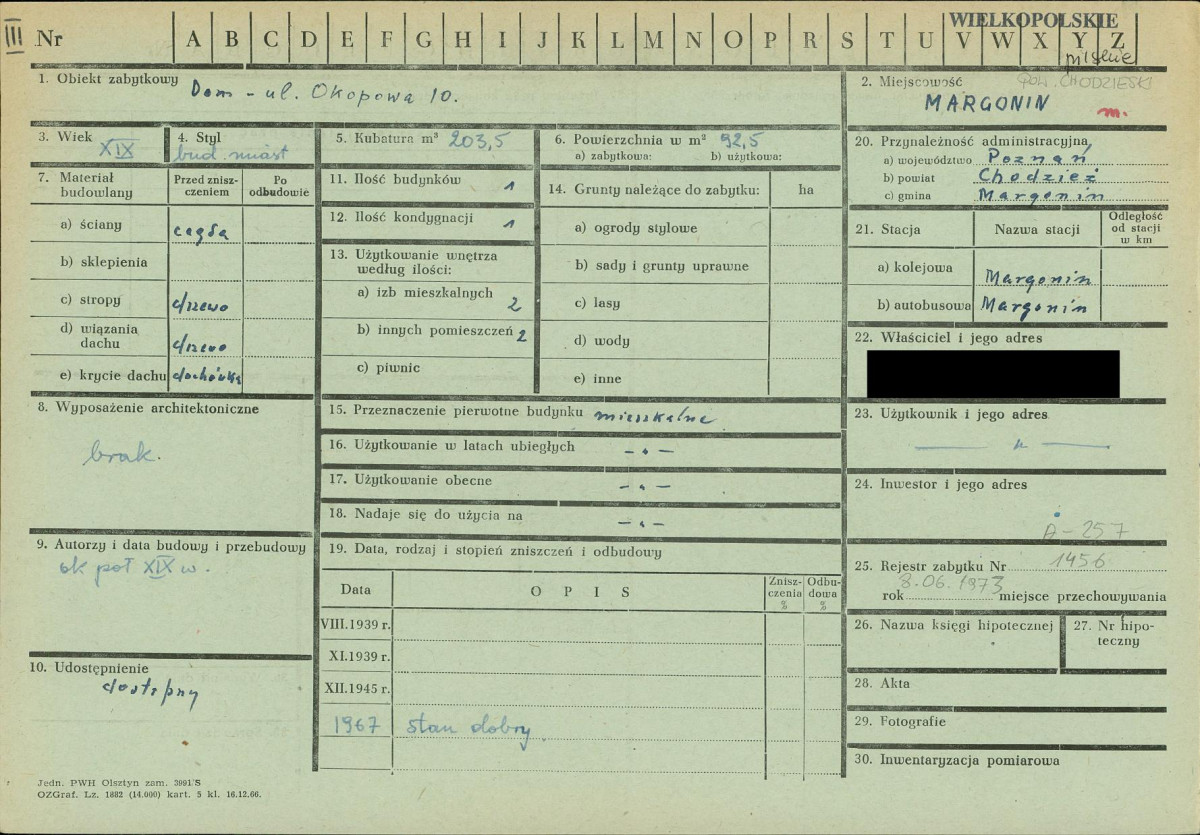 III
Nr A B C D E F G H I J K L M N O P R S T U V W X Y Z
WIELKOPOLSKIE
pilskie
1. Obiekt zabytkowy Dom - ul. Okopowa 10.
2. Miejscowość POW. CHODZIESKI
MARGONIN m.
3. Wiek XIX
4. Styl bud. miast
5. Kubatura m³ 203,5
6. Powierzchnia w m² 92,5
a) zabytkowa: b) użytkowa:
7. Materiał budowlany
Przed zniszczeniem
Po odbudowie
a) ściany cegła
b) sklepienia
c) stropy drzewo
d) wiązania dachu drzewo
e) krycie dachu dachówka
8. Wyposażenie architektoniczne
brak.
9. Autorzy i data budowy i przebudowy
ok poł XIX w.
10. Udostępnienie
dostępny
11. Ilość budynków 1
12. Ilość kondygnacji 1
13. Użytkowanie wnętrza według ilości:
a) izb mieszkalnych 2
b) innych pomieszczeń 2
c) piwnic
14. Grunty należące do zabytku: ha
a) ogrody stylowe
b) sady i grunty uprawne
c) lasy
d) wody
e) inne
15. Przeznaczenie pierwotne budynku mieszkalne
16. Użytkowanie w latach ubiegłych - „ -
17. Użytkowanie obecne - „ -
18. Nadaje się do użycia na - „ -
19. Data, rodzaj i stopień zniszczeń i odbudowy
Data
O P I S
Zniszczenia %
Odbudowa %
VIII.1939 r.
XI.1939 r.
XII.1945 r.
1967 stan dobry.
20. Przynależność administracyjna
a) województwo Poznań
b) powiat Chodzież
c) gmina Margonin
21. Stacja
Nazwa stacji
Odległość od stacji w km
a) kolejowa Margonin
b) autobusowa Margonin
22. Właściciel i jego adres
23. Użytkownik i jego adres
— „ —
24. Inwestor i jego adres
A-257
25. Rejestr zabytku Nr 1456
rok 8.06.1973 miejsce przechowywania
26. Nazwa księgi hipotecznej
27. Nr hipoteczny
28. Akta
29. Fotografie
30. Inwentaryzacja pomiarowa
Jedn. PWH Olsztyn zam. 3991/S
OZGraf. Lz. 1882 (14.000) kart. 5 kl. 16.12.66.